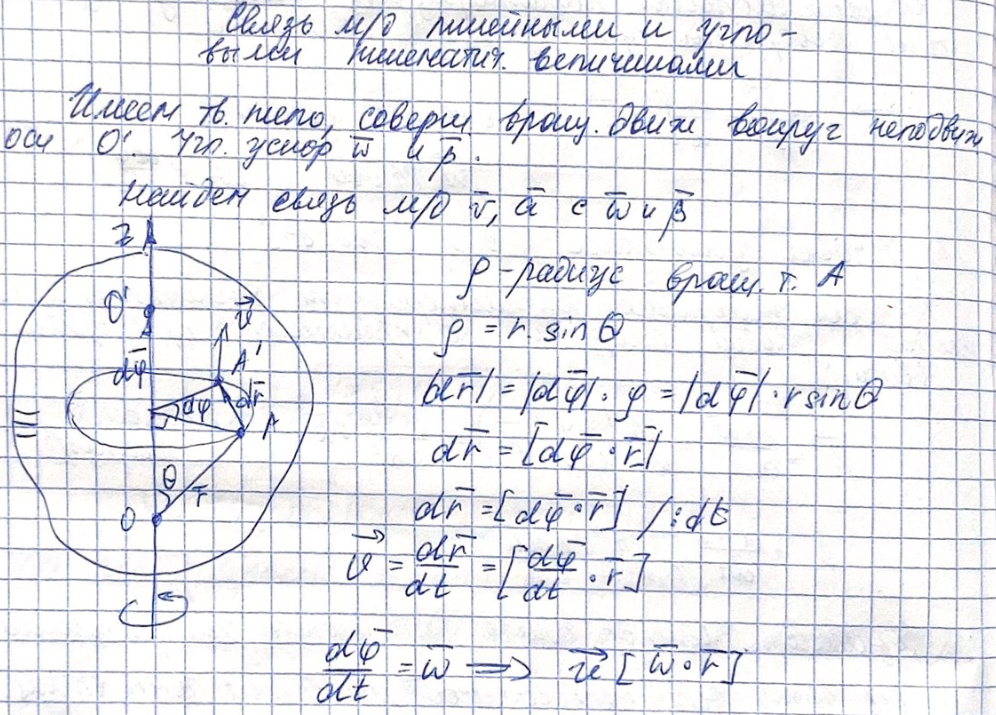 Связь м/д линейными и угло-
выми кинематич. величинами
Имеем тв. тело, соверш вращ. движ вокруг неподвиж
оси O' Угл. ускор w̄ и β̄.
Найдем связь м/д v̄, ā с w̄ и β̄
z
O'
dφ̄
v⃗
A'
dr̄
dφ
A
θ
r̄
O
ρ - радиус вращ. т. A
ρ = r · sin θ
|dr̄| = |dφ̄| · ρ = |dφ̄| · r sin θ
dr̄ = [dφ̄ · r̄]
dr̄ = [dφ̄ · r̄] / :dt
v⃗ = dr̄/dt = [dφ̄/dt · r̄]
dφ̄/dt = w̄ => v⃗ [w̄ · r̄]